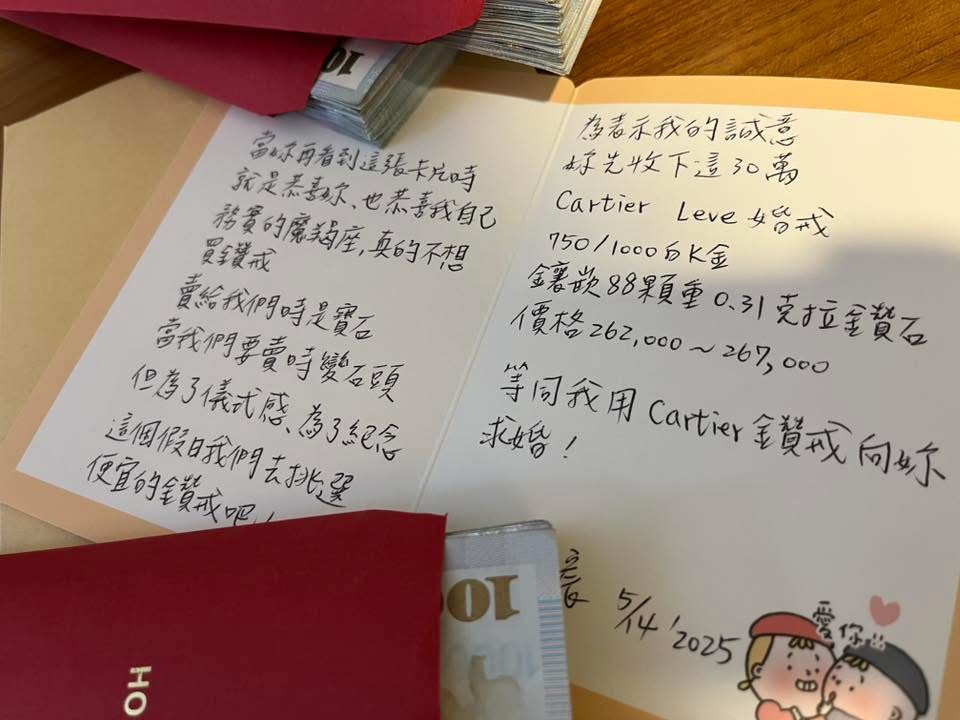 當妳再看到這張卡片時
就是恭喜妳、也恭喜我自己
務實的魔羯座,真的不想
買鑽戒
賣給我們時是寶石
當我們要賣時變石頭
但為了儀式感、為了紀念
這個假日我們去挑選
便宜的鑽戒吧!
為表示我的誠意
妳先收下這30萬
Cartier Leve 婚戒
750/1000白K金
鑲嵌88顆重0.31克拉鑽石
價格262,000~267,000
等同我用Cartier鑽戒向妳
求婚!
5/14 '2025
愛你
100
100
HO